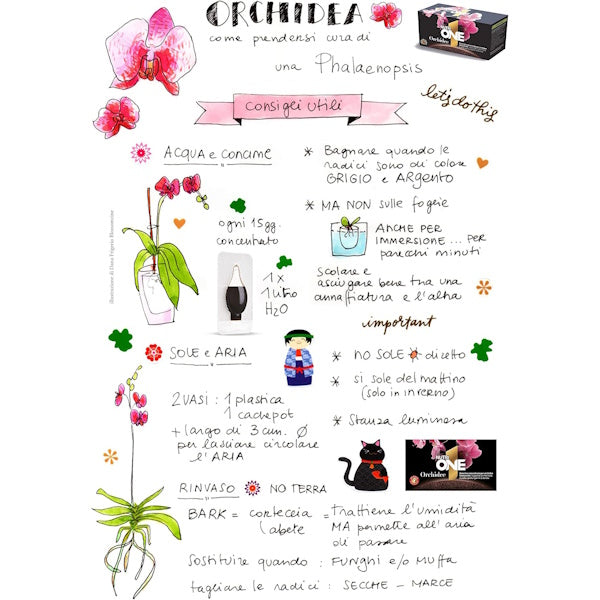 ORCHIDEA
come prendersi cura di
una Phalaenopsis
NUTRI
ONE
Orchidee
let's do this
consigli utili
ACQUA e CONCIME
* Bagnare quando le
radici sono di colore
GRIGIO e ARGENTO
* MA NON sulle foglie
ogni 15gg.
concentrato
1 x
1 litro
H2O
ANCHE PER
IMMERSIONE ... per
parecchi minuti
Scolare e
asciugare bene tra una
annaffiatura e l'altra
important
SOLE e ARIA
* NO SOLE diretto
* si sole del mattino
(solo in inverno)
* Stanza luminosa
2 VASI : 1 plastica
1 cachepot
+ largo di 3 cm. Ø
per lasciare circolare
l'ARIA
NUTRI
ONE
Orchidee
RINVASO NO TERRA
BARK = corteccia
abete
= Trattiene l'umidità
MA permette all'aria
di passare
Sostituire quando : FUNGHI e/o MUFFA
tagliare le radici : SECCHE - MARCE